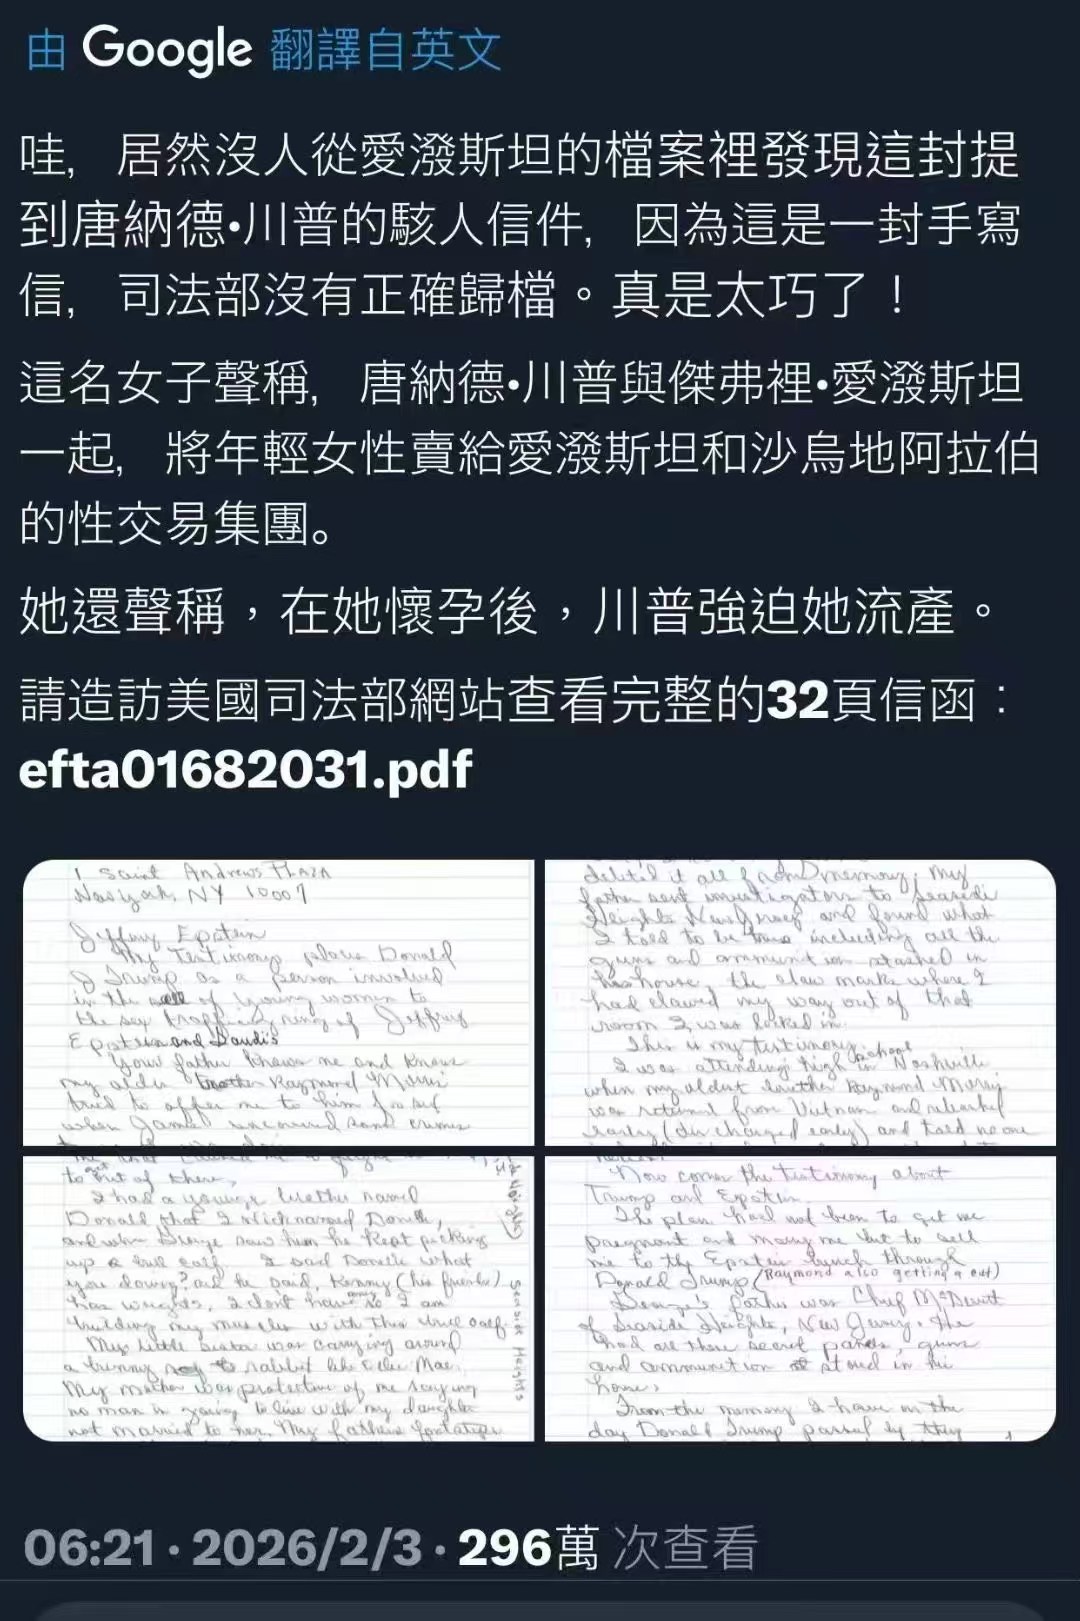 由 Google 翻譯自英文
哇，居然沒人從愛潑斯坦的檔案裡發現這封提
到唐納德•川普的駭人信件，因為這是一封手寫
信，司法部沒有正確歸檔。真是太巧了！
這名女子聲稱，唐納德•川普與傑弗裡•愛潑斯坦
一起，將年輕女性賣給愛潑斯坦和沙烏地阿拉伯
的性交易集團。
她還聲稱，在她懷孕後，川普強迫她流產。
請造訪美國司法部網站查看完整的32頁信函：
efta01682031.pdf
1 Saint Andrews Plaza
NY 10007
Jeffrey Epstein
My Testimony places Donald
J Trump as a person involved
in the sell of young women to
the sex trafficking ring of Jeffrey
Epstein and Saudi's
Your father knows me and knows
my older brother Raymond
tried to offer me to him for sex
when James uncovered some crimes
deleted it all from memory. My
father sent investigators to Seaside
Heights New Jersey and found what
I told to be true including all the
guns and ammunition stashed in
his house, the claw marks where I
had clawed my way out of that
room I was locked in.
This is my testimony.
I was attending high school in Nashville
when my oldest brother Raymond
was returned from Vietnam and released
early (discharged early) and told no one
to get out of there.
I had a younger brother named
Donald that I nicknamed
and when George saw him he kept picking
up a bull calf. I said what
you doing? and he said, Kenny (his friend)
has weights, I don't have any so I am
building my muscles with this bull calf.
My little sister was carrying around
a bunny rabbit like Ellie Mae.
My mother was protective of me saying
no man is going to live with my daughter
not married to her. My father's
Seaside Heights
Now comes the testimony about
Trump and Epstein.
The plan had not been to get me
pregnant and marry me but to sell
me to the Epstein bunch through
Donald Trump (Raymond also getting a cut)
George's father was Chief McDevitt
of Seaside Heights, New Jersey. He
had all these secret panels, guns
and ammunition stored in his
home.
From the memory I have on the
day Donald Trump passed by they
06:21 · 2026/2/3 · 296萬 次查看